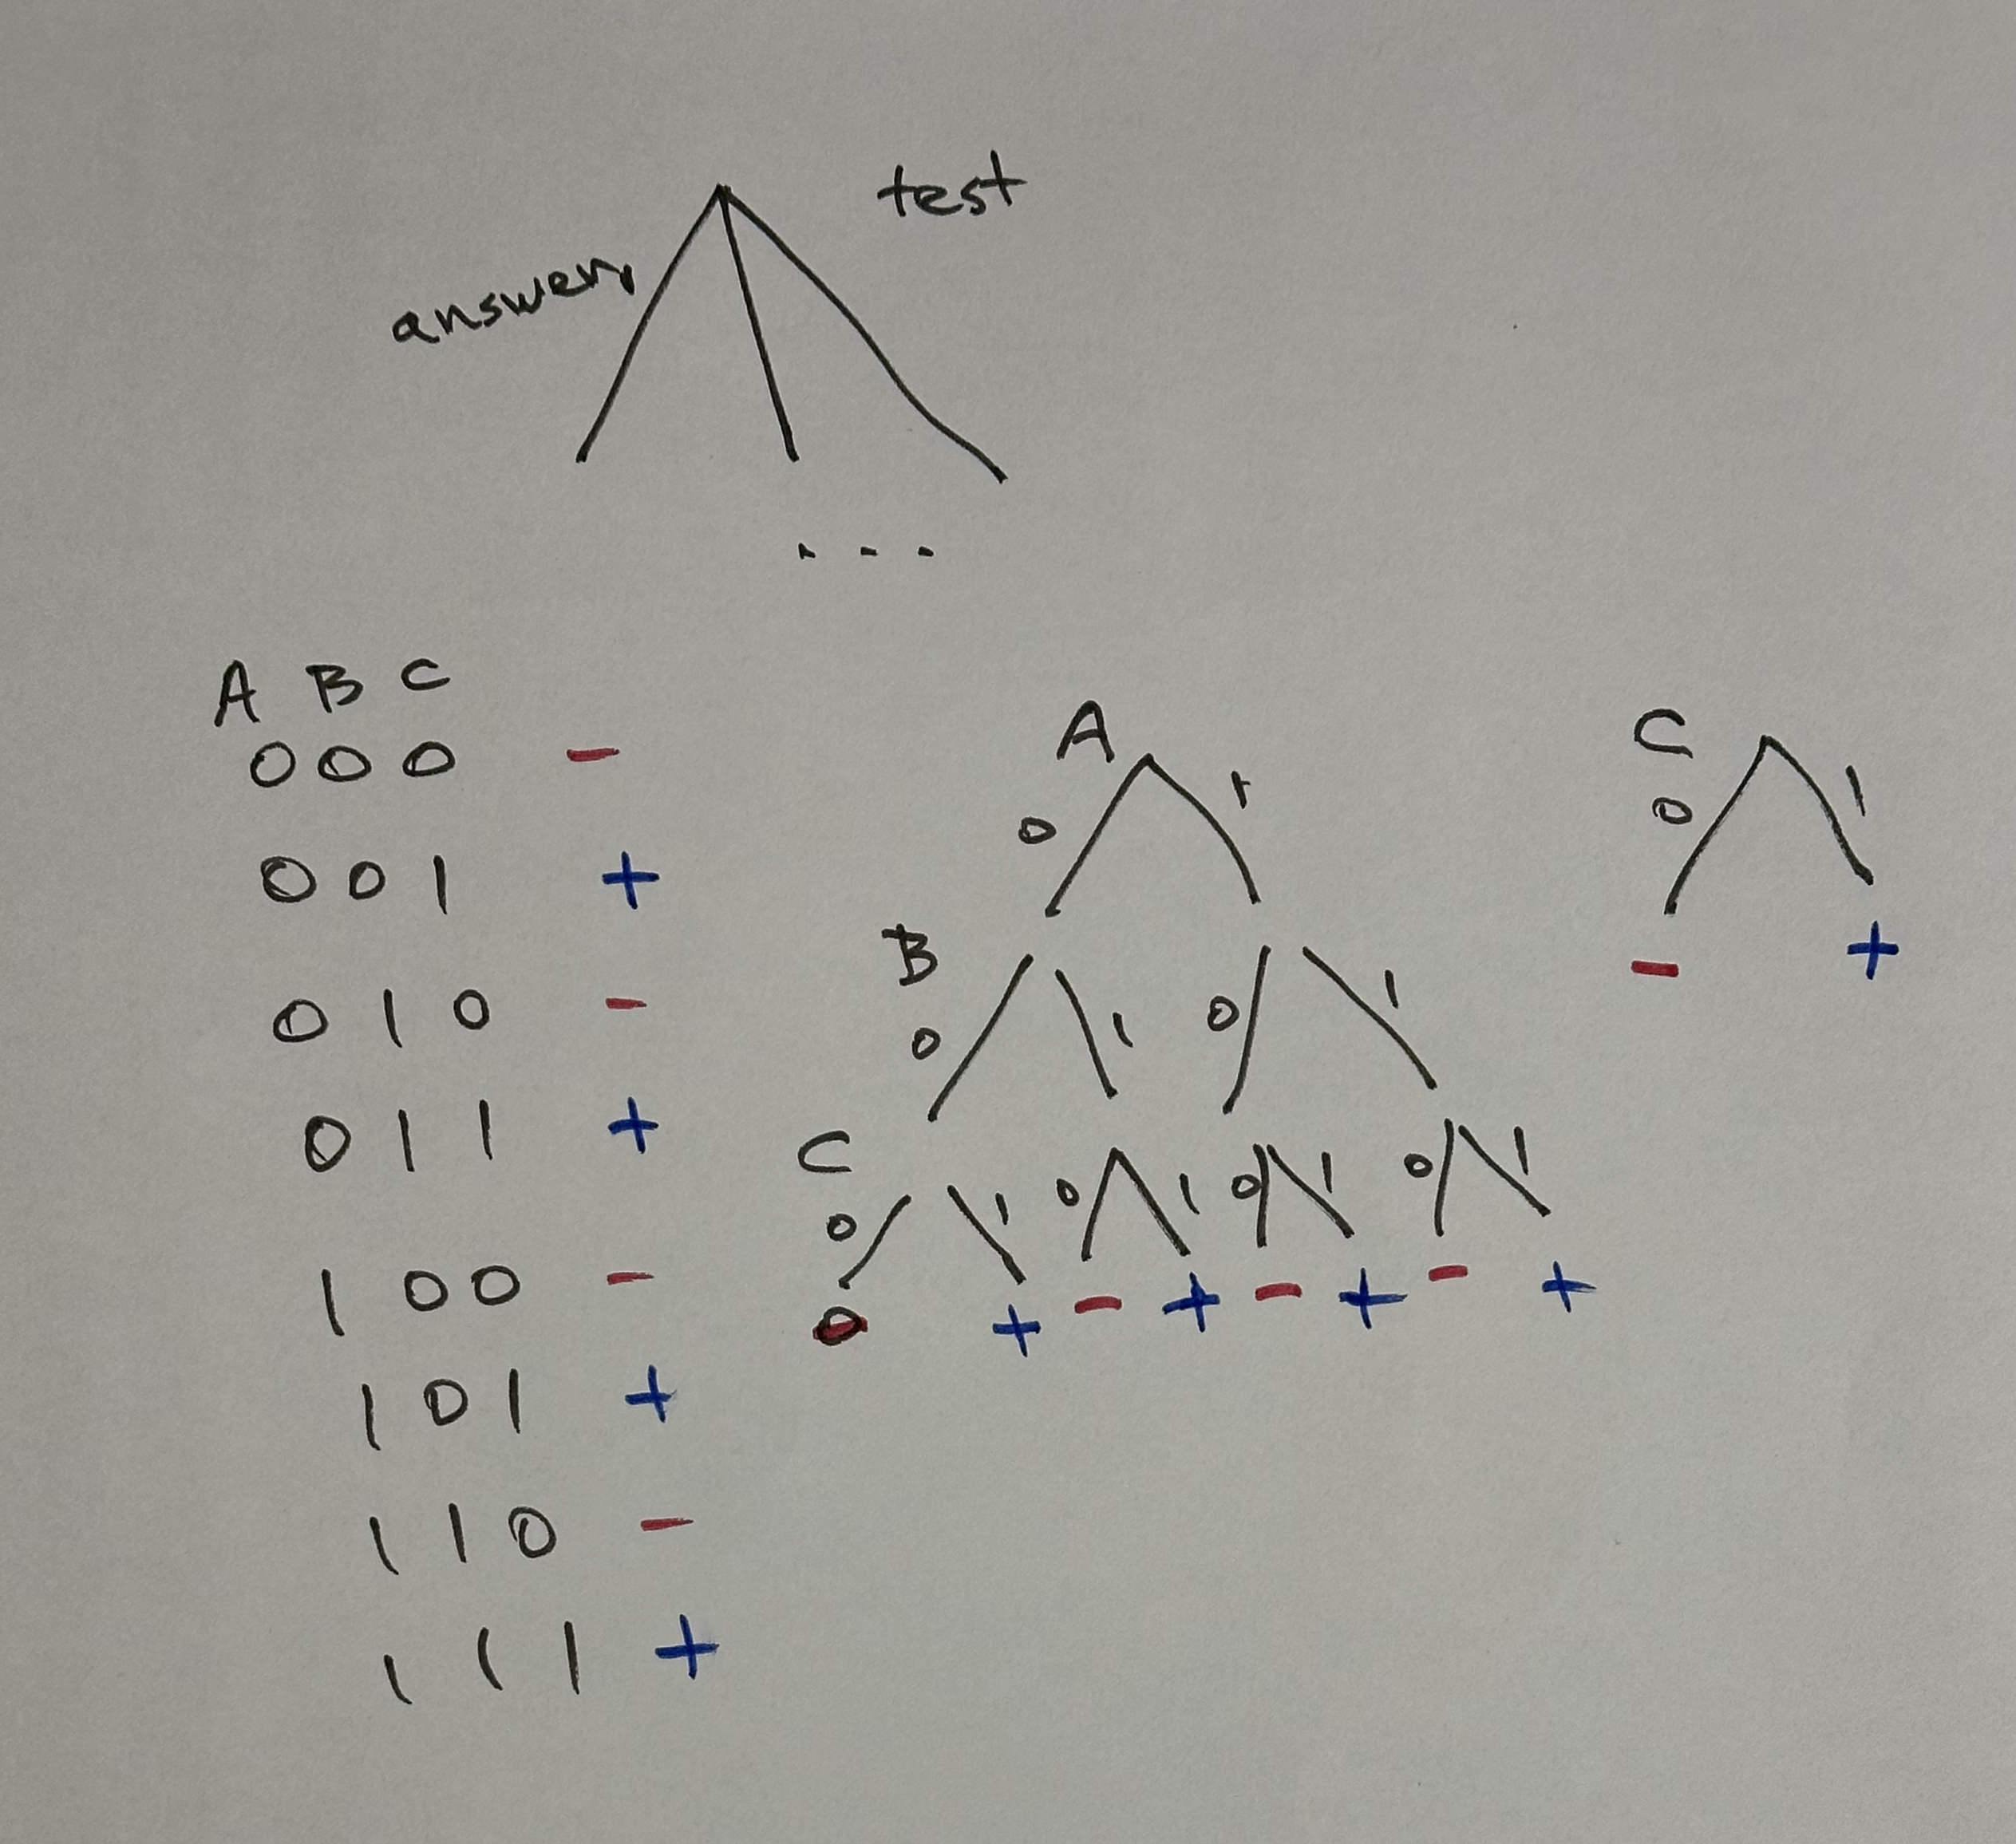 test
answer
. . .
A B C
0 0 0 -
0 0 1 +
0 1 0 -
0 1 1 +
1 0 0 -
1 0 1 +
1 1 0 -
1 1 1 +
A
0 1
B
0 1 0 1
C
0 1 0 1 0 1 0 1
0 + - + - + - +
C
0 1
- +